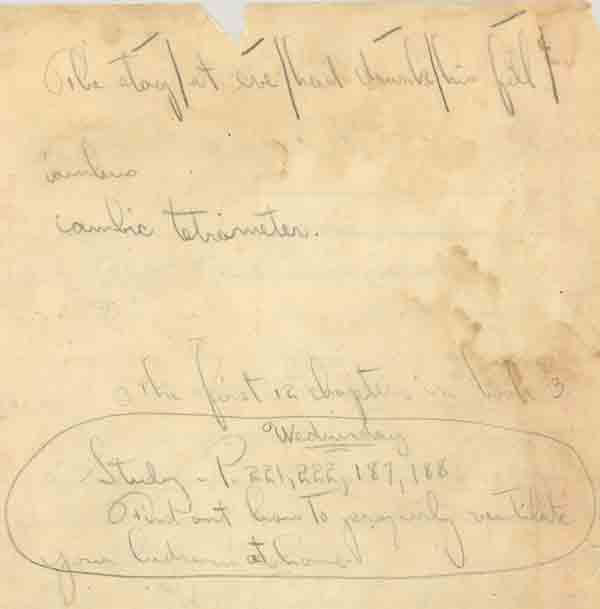 The stag/at eve/had drunk/his fill/
iambus
iambic tetrameter.
The first 12 chapters in book 3
Wednesday
Study - P. 221, 222, 187, 188
Find out how to properly ventilate
your bedroom at home.